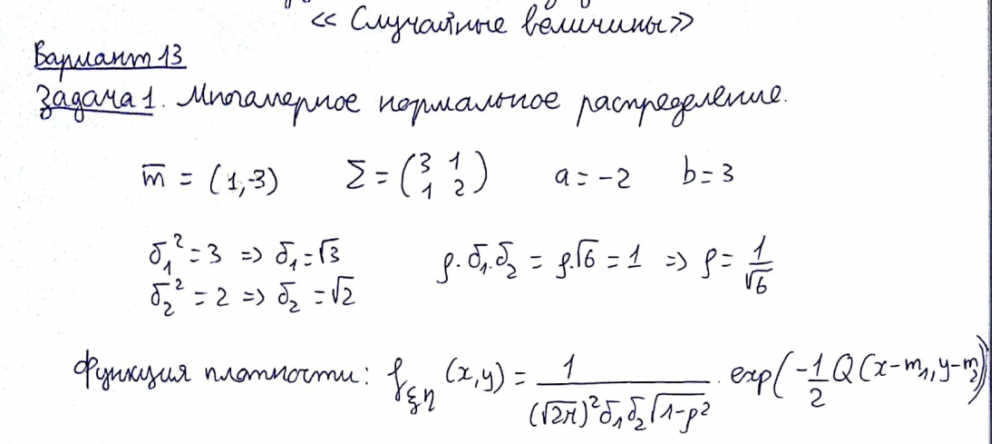 « Случайные величины»
Вариант 13
Задача 1. Многомерное нормальное распределение.
m̅ = (1,-3) Σ = (3 1
1 2) a = -2 b = 3
σ₁² = 3 => σ₁ = √3 ρ·σ₁·σ₂ = ρ·√6 = 1 => ρ = 1/√6
σ₂² = 2 => σ₂ = √2
Функция плотности: f_ξη (x,y) = 1/((√2π)² σ₁ σ₂ √1-ρ²) · exp(-1/2 Q(x-m₁, y-m₂)